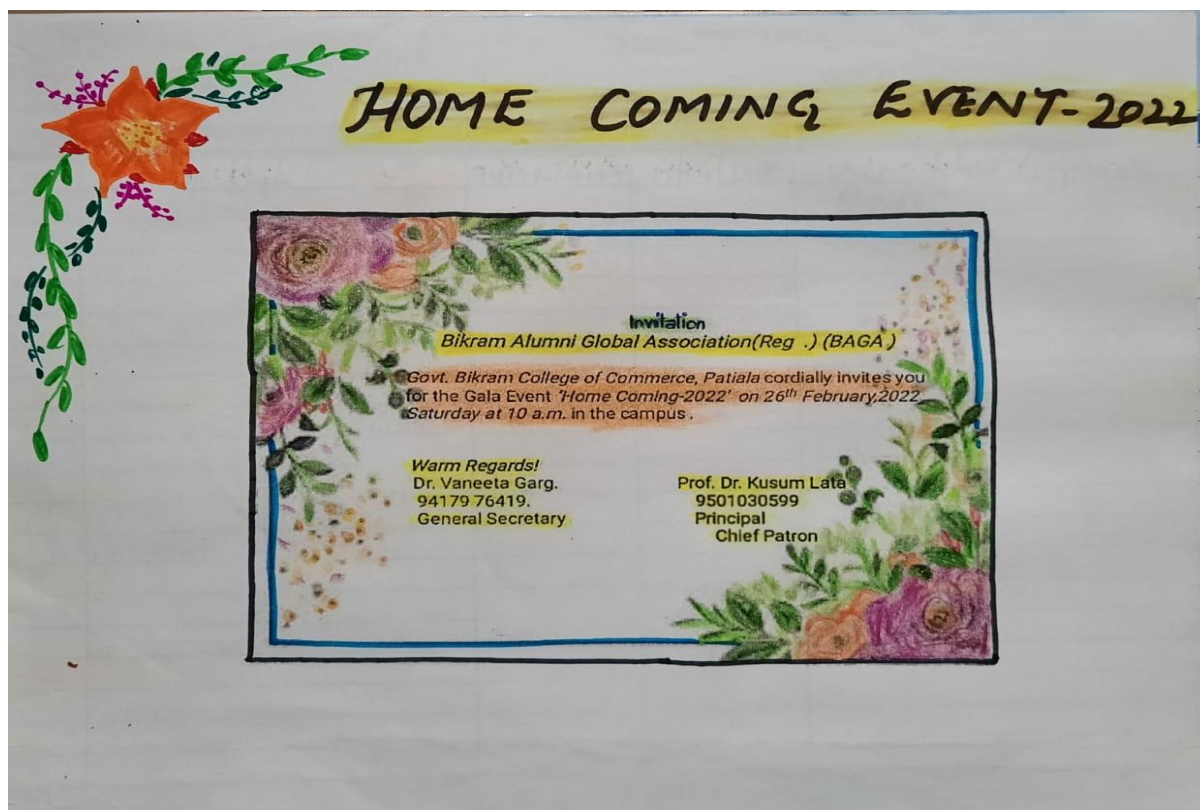 HOME COMING EVENT-2022
Invitation
Bikram Alumni Global Association(Reg .) (BAGA )
Govt. Bikram College of Commerce, Patiala cordially invites you
for the Gala Event 'Home Coming-2022' on 26th February,2022
Saturday at 10 a.m. in the campus .
Warm Regards!
Dr. Vaneeta Garg.
94179 76419.
General Secretary
Prof. Dr. Kusum Lata
9501030599
Principal
Chief Patron